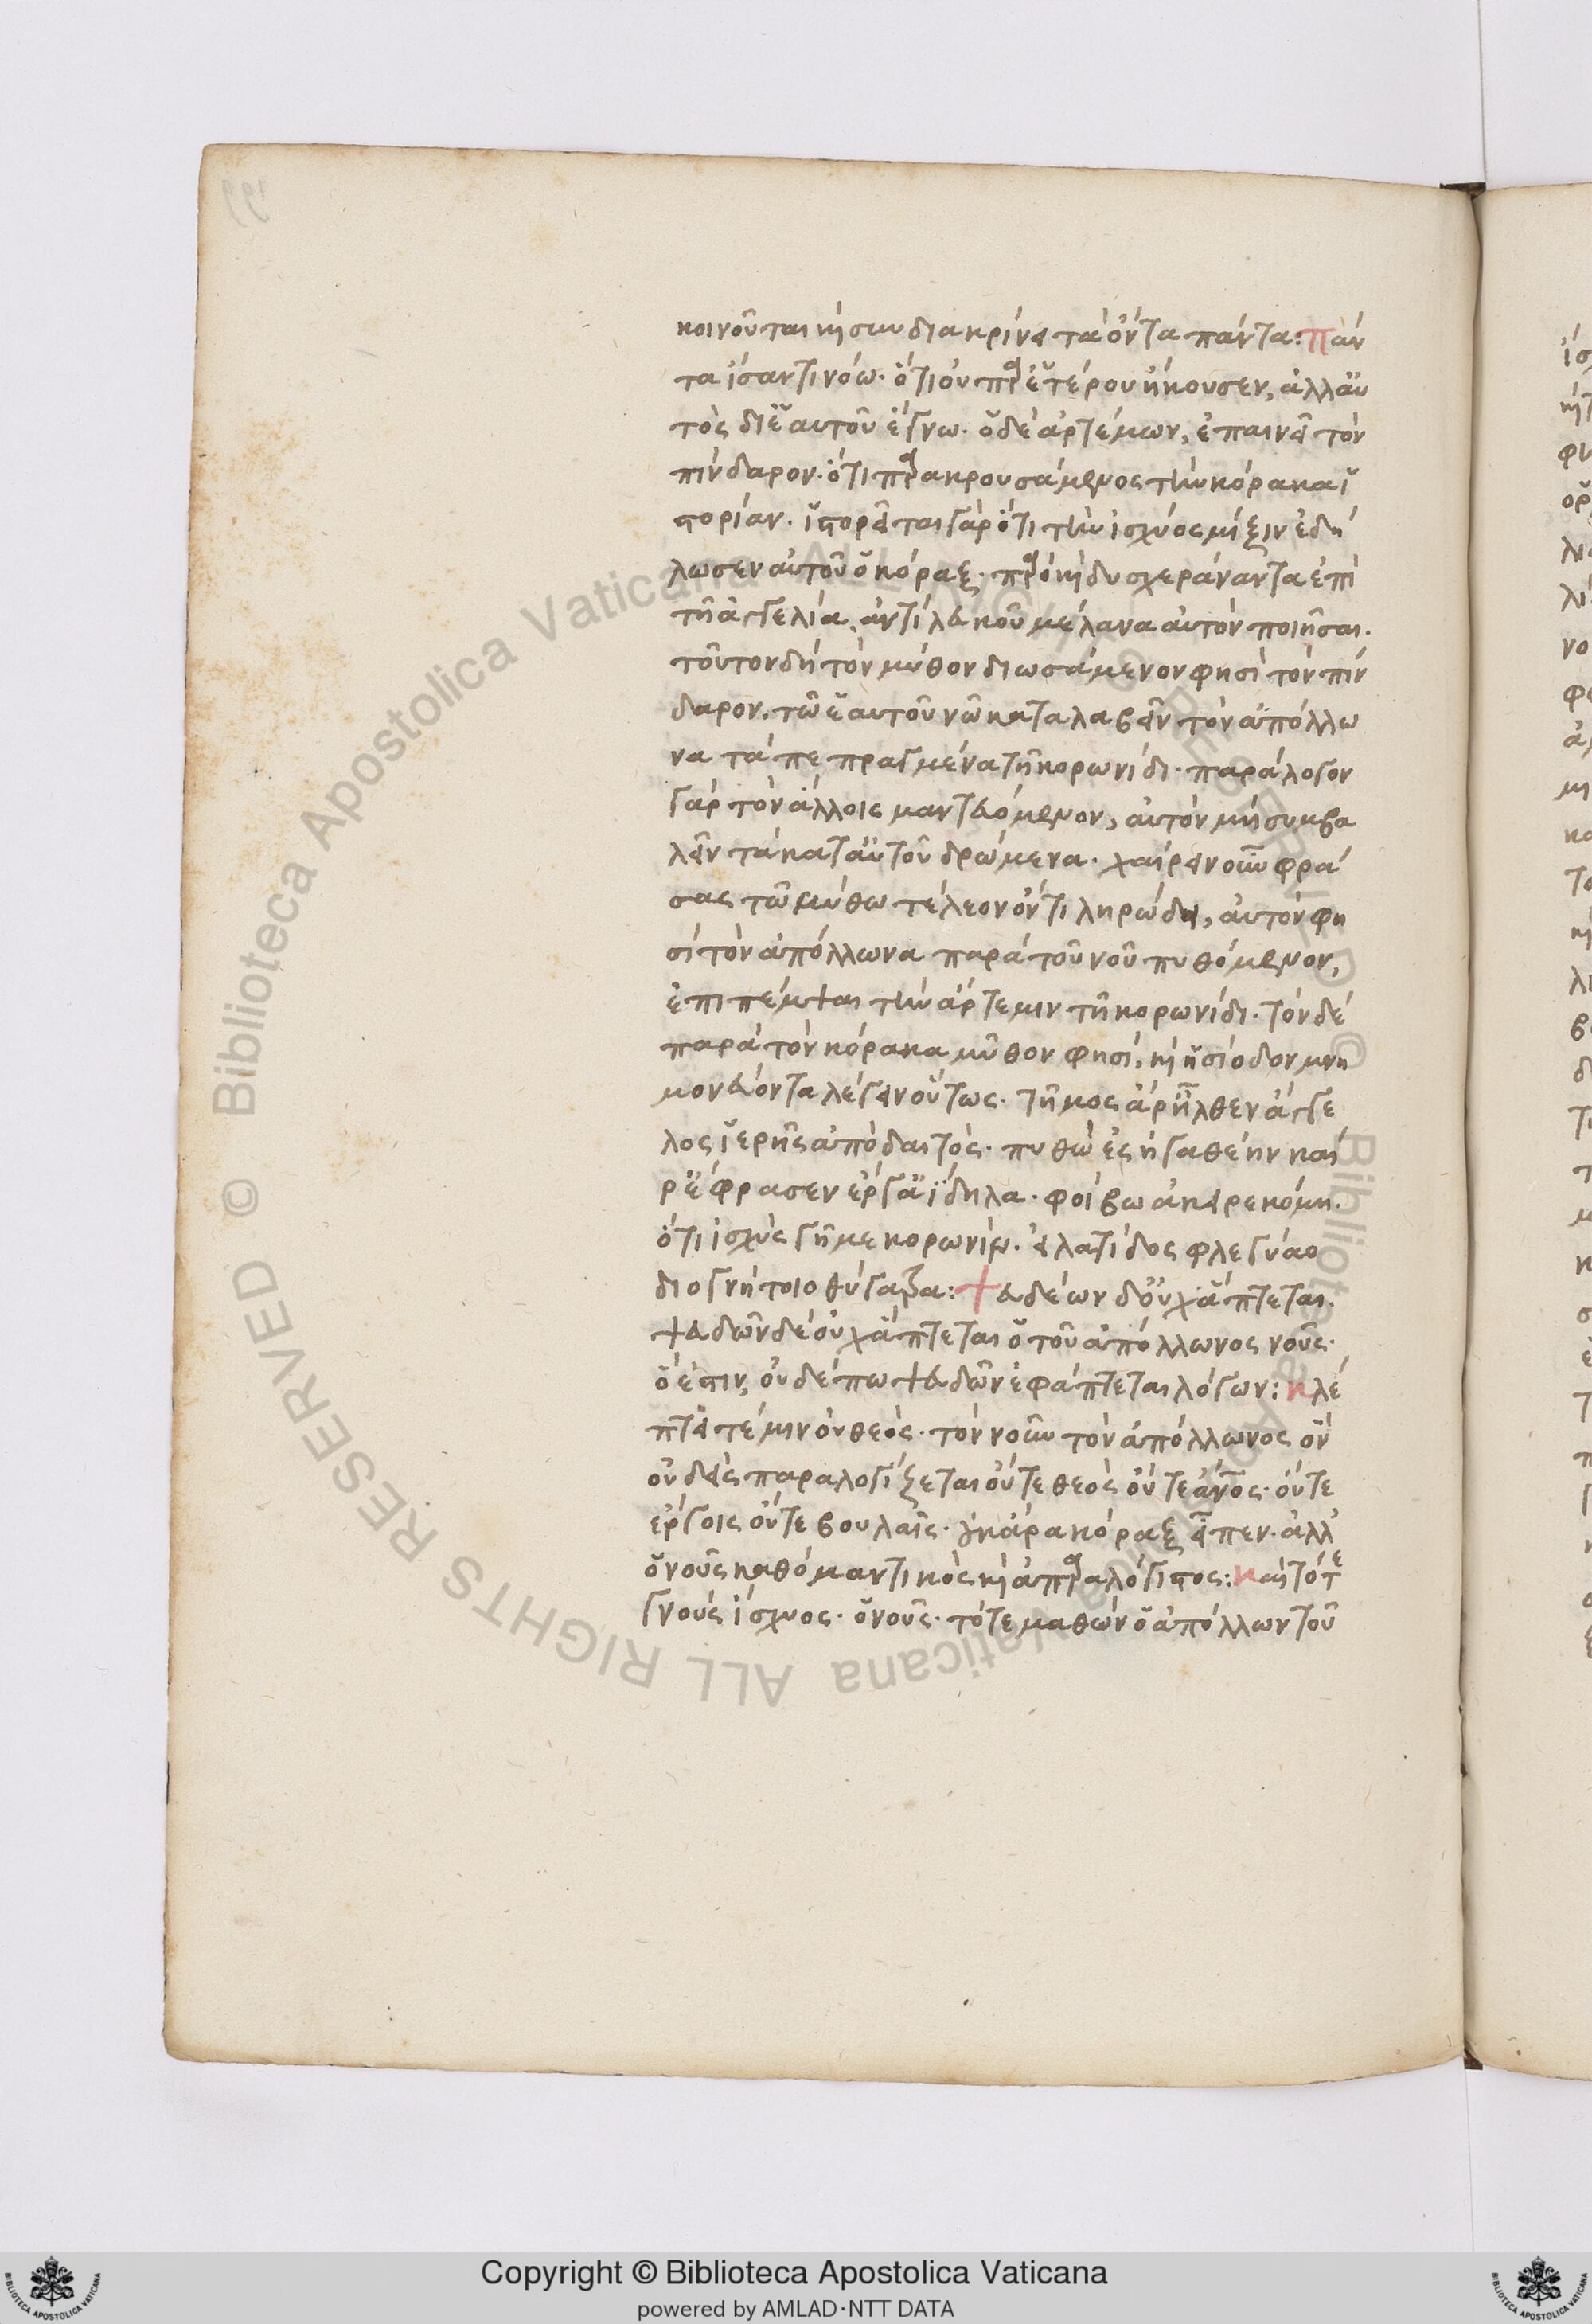 κοινοῦται κὴ συνδιακρίνει τὰ ὄντα πάντα: Πάν
τα ἰσαντι νόω· ὅτι οὐ παρ ἑτέρου ἤκουσεν, ἀλλ αὐ
τὸς δι ἑαυτοῦ ἔγνω· ὁ δὲ ἀρτέμων, ἐπαινεῖ τὸν
πίνδαρον· ὅτι παρακρουσάμενος τὴν κόρακα ἱ
στορίαν· ἱστορεῖται γὰρ ὅτι τὴν ἴσχυος μῖξιν ἐδή
λωσεν αὐτοῦ ὁ κόραξ· παρ ὃ κὴ δυσχεράναντα ἐπὶ
τῆ ἀγγελία, ἀντὶ λευκοῦ μέλανα αὐτὸν ποιῆσαι.
τοῦτον δὴ τὸν μῦθον διωσάμενον φησὶ τὸν πίν
δαρον, τῶ ἑαυτοῦ νῶ καταλαβεῖν τὸν ἀπόλλω
να τὰ πεπραγμένα τῆ κορωνίδι· παράλογον
γὰρ τὸν ἄλλοις μαντευόμενον, αὐτὸν μὴ συμβα
λεῖν τὰ κατ αὐτοῦ δρώμενα· χαίρειν οὖν φρά
σας τῶ μύθω τέλεον ὄντι ληρώδει, αὐτόν φη
σὶ τὸν ἀπόλλωνα παρὰ τοῦ νοῦ πυθόμενον,
ἐπιπέμψαι τὴν ἄρτεμιν τῆ κορωνίδι· τὸν δὲ
παρὰ τὸν κόρακα μῦθον φησί, κὴ ἡσίοδον μνη
μονεύοντα λέγειν οὕτως· τῆμος ἄρ ἦλθεν ἄγγε
λος ἱερῆς ἀπὸ δαιτός· πυθὼ ἐς ἠγαθέην καί
ρ ἔφρασεν ἔργ ἀΐδηλα· φοίβω ἀκειρεκόμη.
ὅτι ἰσχὺς γῆμε κορωνιν· εἰλατίδος φλεγύαο
διογνήτοιο θύγατρα: Ψευδέων δ οὐχ ἅπτεται.
ψευδῶν δὲ οὐχ ἅπτεται ὁ τοῦ ἀπόλλωνος νοῦς.
ὅ ἐστιν, οὐδέπω ψευδῶν ἐφάπτεται λόγων: Κλέ
πτει τέ μιν οὐ θεός· τὸν νοῦν τὸν ἀπόλλωνος ὃν
οὐδεὶς παραλογίζεται οὔτε θεὸς οὔτε ἄνος· οὔτε
ἔργοις οὔτε βουλαῖς· οὐκ ἄρα κόραξ εἶπεν· ἀλλ
ὁ νοῦς καθὸ μαντικὸς κὴ ἀπαραλόγιστος: Καὶ τότε
γνοὺς ἴσχυος· ὁ νοῦς· τότε μαθὼν ὁ ἀπόλλων τοῦ
Copyright © Biblioteca Apostolica Vaticana
powered by AMLAD·NTT DATA